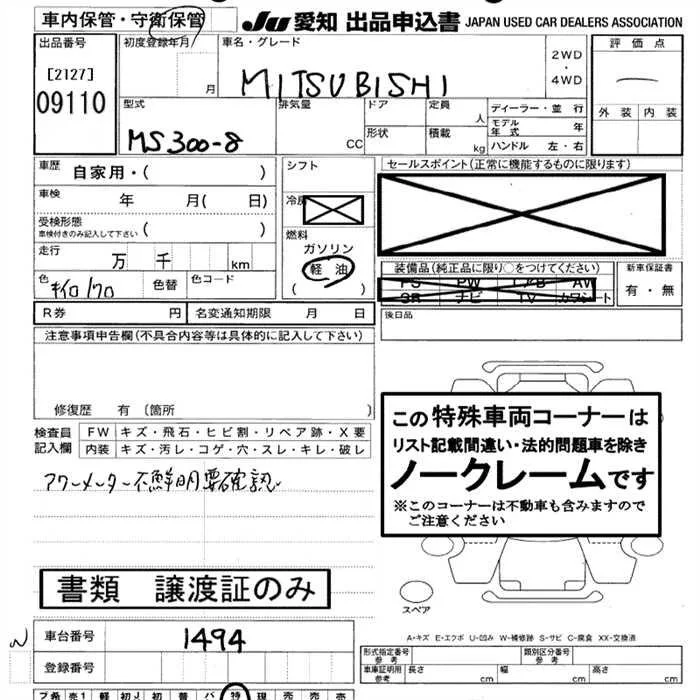 車内保管・守衛保管 JU 愛知 出品申込書 JAPAN USED CAR DEALERS ASSOCIATION
出品番号 初度登録年月 車名・グレード 評価点
[2127] 月 MITSUBISHI 2WD・4WD
09110
型式 排気量 ドア 定員 ディーラー・並 行 外装 内装
MS300-8 CC 形状 人 積載 kg モデル年式 年
ハンドル 左・右
車歴 自家用・( ) シフト セールスポイント(正常に機能するものに限ります)
車検 年 月( 日) 冷房
受検形態
車検付きのみ記入して下さい ( ) 燃料
ガソリン
走行 万 千 km 軽油 装備品(純正品に限り○をつけてください) 新車保証書
色 キイロ/クロ 色替 色コード ( ) PS PW エアB AW 有・無
SR ナビ TV カワシート
R券 円 名変通知期限 月 日 後日品
注意事項申告欄(不具合内容等は具体的に記入して下さい)
修復歴 有 〔箇所 〕
この特殊車両コーナーは
リスト記載間違い・法的問題車を除き
ノークレームです
※このコーナーは不動車も含みますので
ご注意ください
検査員記入欄 FW キズ・飛石・ヒビ割・リペア跡・X要
内装 キズ・汚レ・コゲ・穴・スレ・キレ・破レ
アワーメーター不鮮明要確認
書類 譲渡証のみ
スペア
A・キズ E・エクボ U・凹み W・補修跡 S・サビ C・腐食 XX・交換済
N 車台番号 1494
登録番号
形式指定番号 参考 類別区分番号 参考
車庫証明用 参考 長さ cm 幅 cm 高さ cm